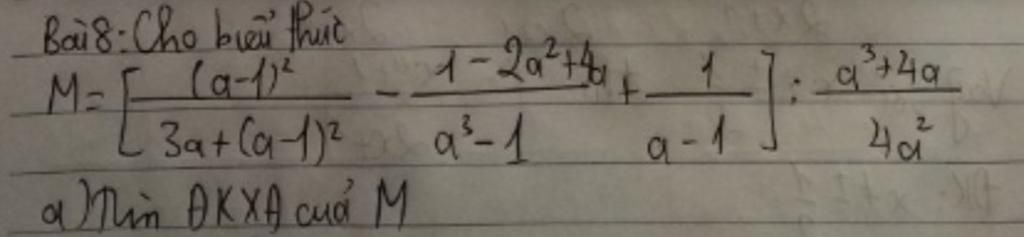 Bài 8: Cho biểu thức
M = [ (a-1)² / (3a+(a-1)²) - (1-2a²+4a) / (a³-1) + 1 / (a-1) ] : (a³+4a) / 4a²
a) Tìm ĐKXĐ cuả M